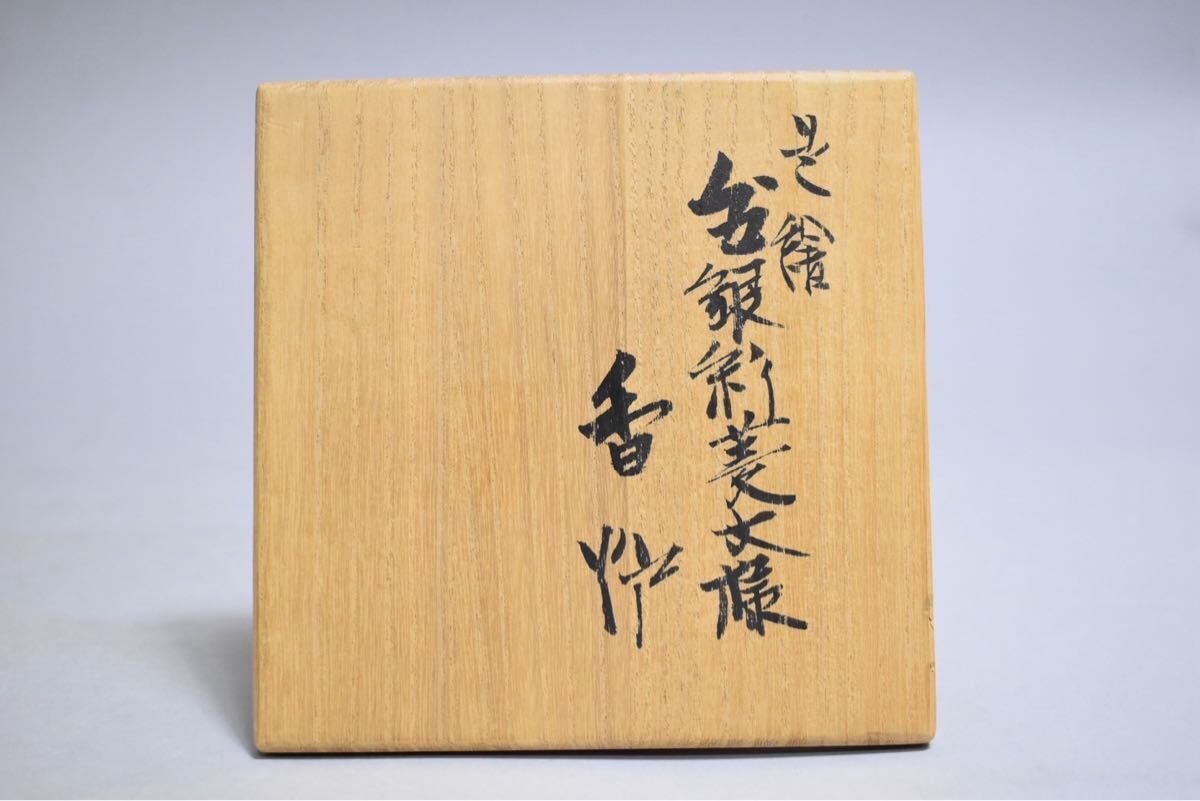 色繪
金銀彩菱文様
香炉